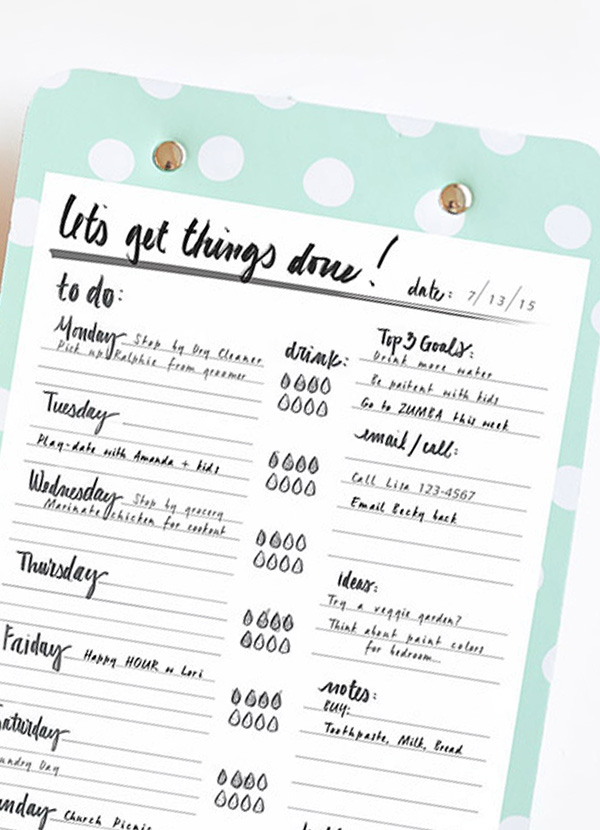 let's get things done!
date: 7/13/15
to do:
Monday Stop by Dry Cleaner
Pick up Ralphie from groomer
Tuesday
Play-date with Amanda + kids
Wednesday Stop by grocery
Marinate chicken for cookout
Thursday
Friday Happy HOUR w Lori
aturday
undry Day
unday Church Picnic
drink:
Top 3 Goals:
Drink more water
Be paitent with kids
Go to ZUMBA this week
email/call:
Call Lisa 123-4567
Email Becky back
ideas:
Try a veggie garden?
Think about paint colors
for bedroom...
notes:
BUY:
Toothpaste, Milk, Bread